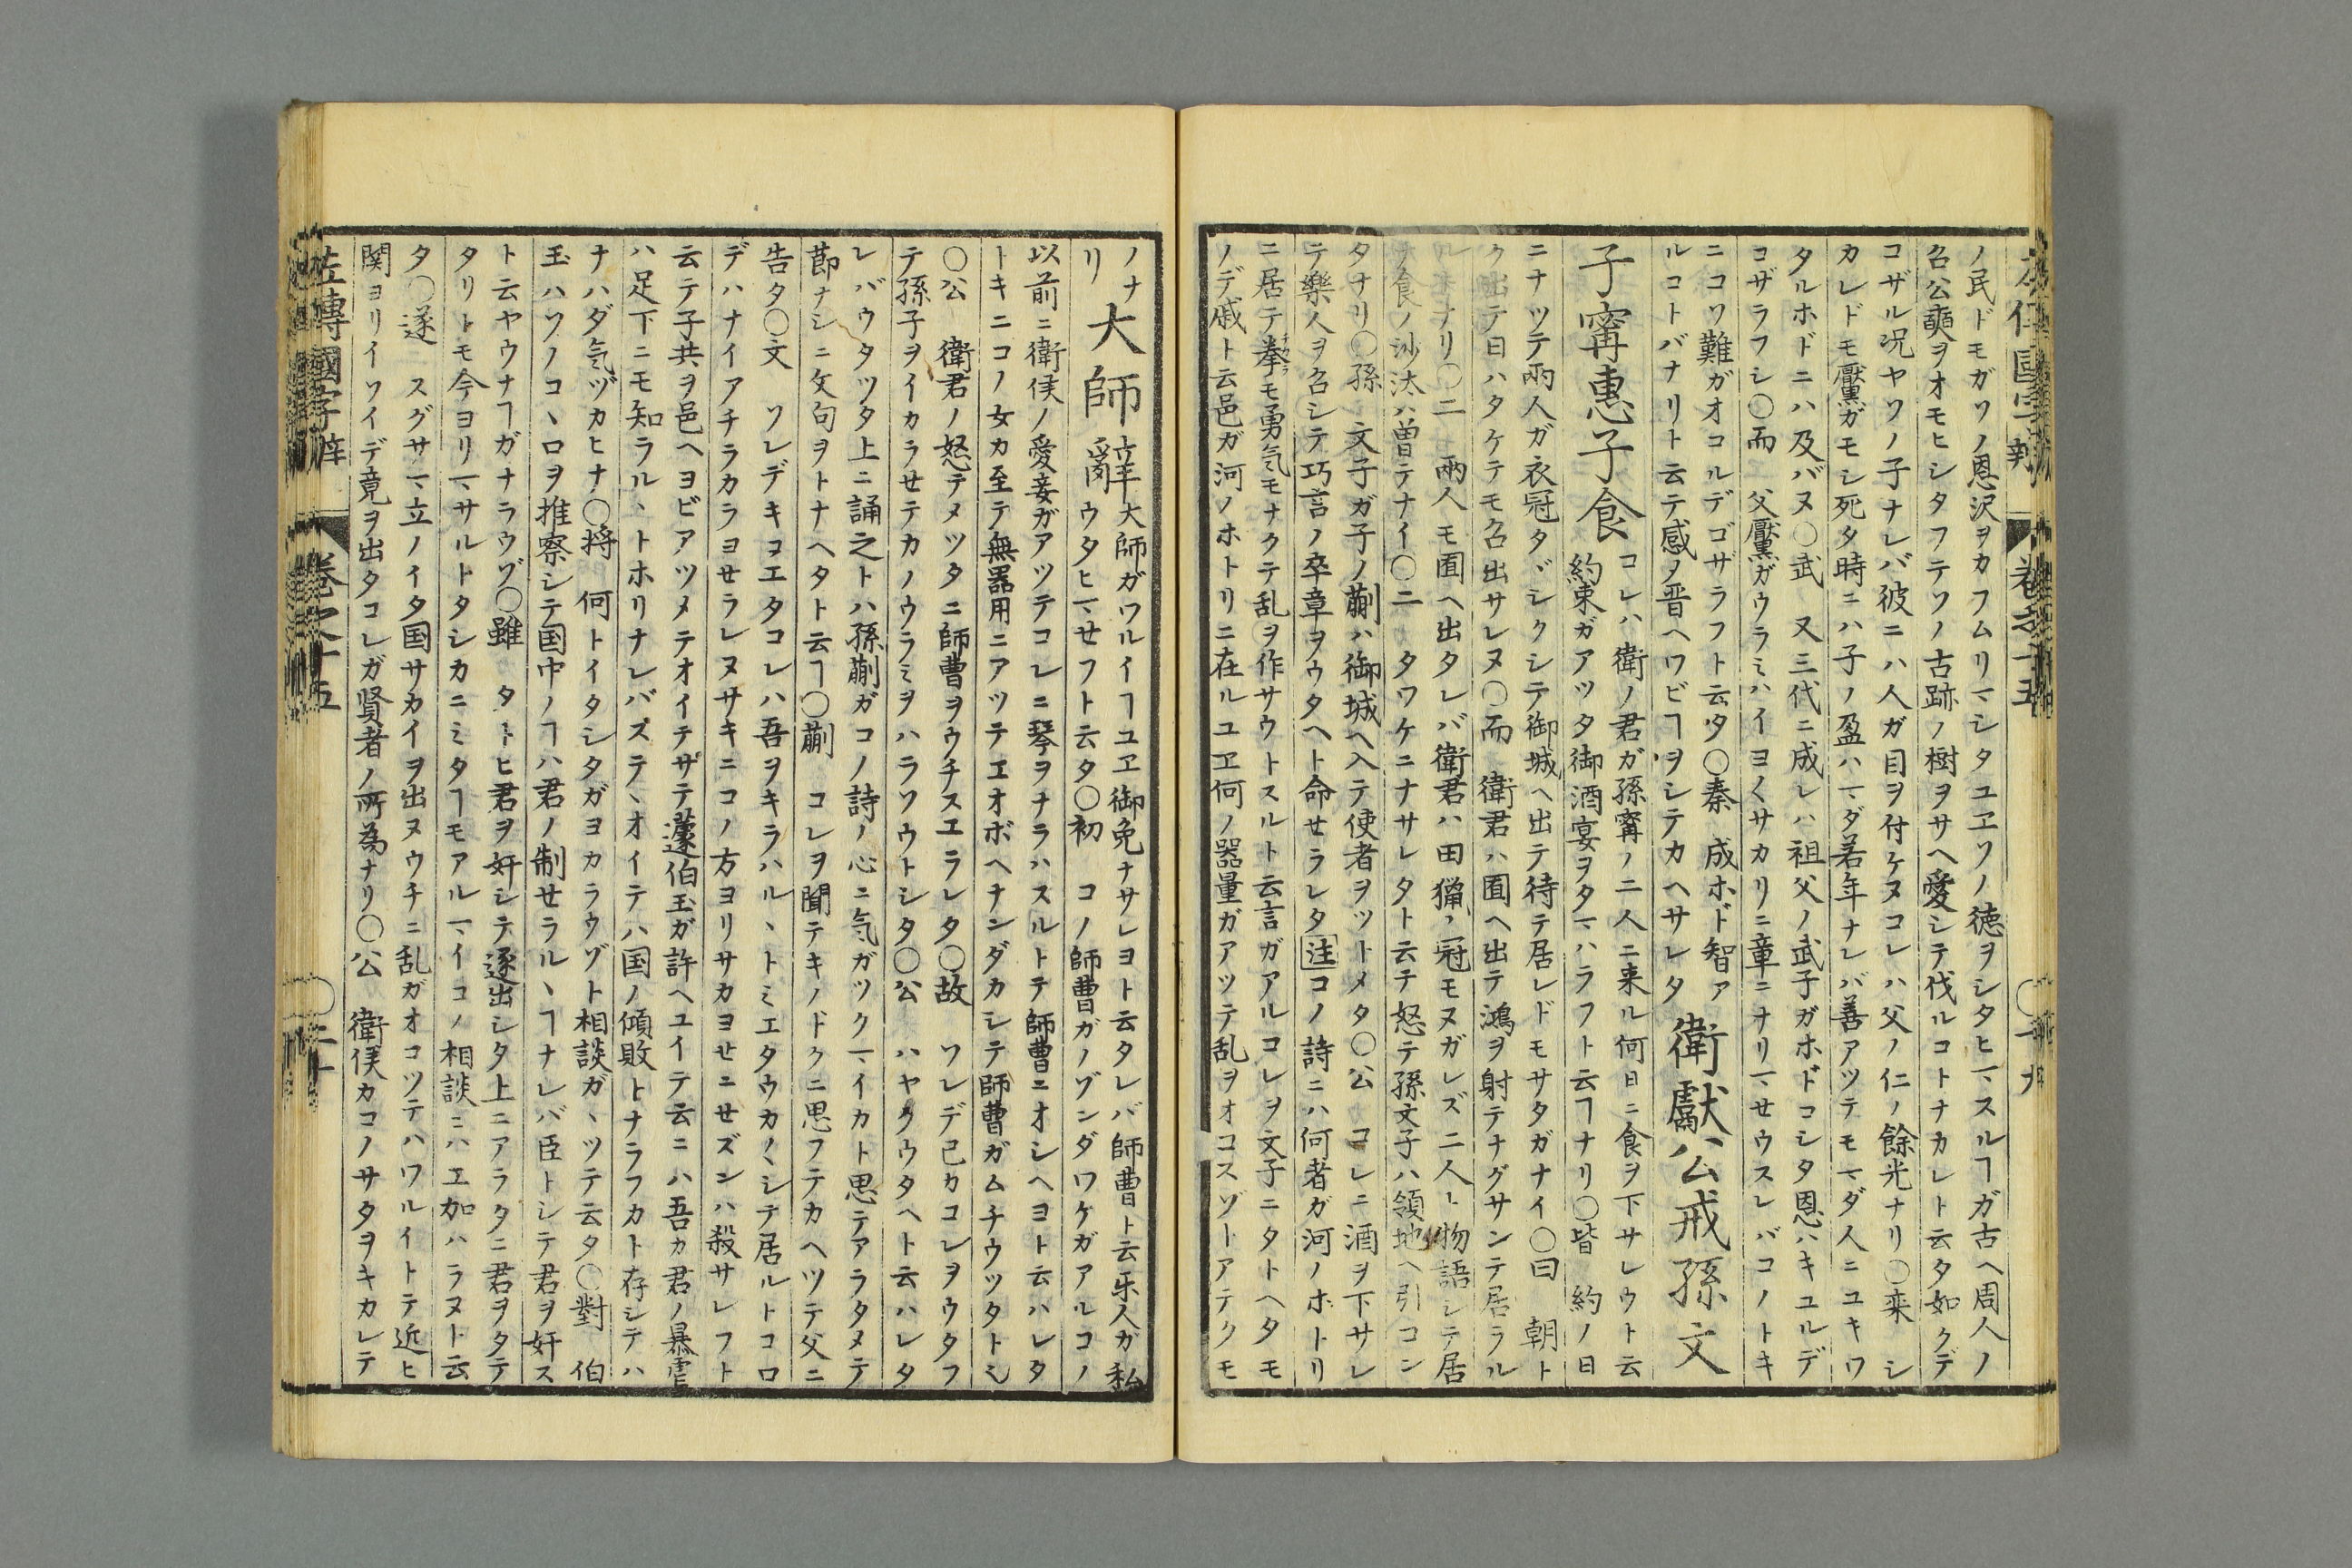 左傳國字辨 卷之十五 〇十九
ノ民ドモガソノ恩沢ヲカフムリマシタユヱソノ徳ヲシタヒマスルヿガ古ヘ周人ノ
召公奭ヲオモヒシタフテソノ古跡ノ樹ヲサヘ愛シテ伐ルコトナカレト云タ如クデ
コザル况ヤソノ子ナレバ彼ニハ人ガ目ヲ付ケヌコレハ父ノ仁ノ餘光ナリ〇栾 シ
カレドモ黶ガモシ死タ時ニハ子ノ盈ハマダ若年ナレバ善アツテモマダ人ニユキワ
タルホドニハ及バヌ〇武 又三代ニ成レハ祖父ノ武子ガホドコシタ恩ハキユルデ
コザラフシ〇而 父黶ガウラミハイヨ〱サカリニ章ニナリマせウスレバコノトキ
ニコソ難ガオコルデゴザラフト云タ〇秦 成ホド智ア
ルコトバナリト云テ感ノ晋ヘワビヿヲシテカヘサレタ 衛獻公戒孫文
子甯惠子食 コレハ衛ノ君ガ孫甯ノ二人ニ来ル何日ニ食ヲ下サレウト云
約束ガアツタ御酒宴ヲタマハラフト云ヿナリ〇皆 約ノ日
ニナツテ兩人ガ衣冠タヾシクシテ御城ヘ出テ待テ居レドモサタガナイ〇曰 朝ト
ク出テ日ハタケテモ召出サレヌ〇而 衛君ハ囿ヘ出テ鴻ヲ射テナグサンテ居ラル
ルナリ〇二 せ兩人モ囿ヘ出タレバ衛君ハ田獵ノ冠モヌガレズ二人ト物語シテ居
テ食ノ沙汰ハ曽テナイ〇二 タワケニナサレタト云テ怒テ孫文子ハ領地ヘ引コン
タナリ〇孫 文子ガ子ノ蒯ハ御城ヘ入テ使者ヲツトメタ〇公 コレニ酒ヲ下サレ
テ樂人ヲ召シテ巧言ノ卒章ヲウタヘト命せラレタ注コノ詩ニハ何者ガ河ノホトリ
ニ居テ拳モ勇気モナクテ乱ヲ作サウトスルト云言ガアルコレヲ文子ニタトヘタモ
ノデ戚ト云邑ガ河ノホトリニ在ルユヱ何ノ器量ガアツテ乱ヲオコスゾーアテクモ
ノナ
リ 大師辭 大師ガワルイヿユヱ御免ナサレヨト云タレバ師曹ト云乐人ガ私
ウタヒマせフト云タ〇初 コノ師曹ガノゾンダワケガアルコノ
以前ニ衛侯ノ愛妾ガアツテコレニ琴ヲナラハスルトテ師曹ニオシヘヨト云ハレタ
トキニコノ女カ至テ無器用ニアツテエオボヘナンダカシテ師曹ガムチウツタトシ
〇公 衛君ノ怒テメツタニ師曹ヲウチスエラレタ〇故 ソレデ已カコレヲウタフ
テ孫子ヲイカラせテカノウラミヲハラソウトシタ〇公 ハヤクウタヘト云ハレタ
レバウタツタ上ニ誦之トハ孫蒯ガコノ詩ノ心ニ気ガツクマイカト思テアラタメテ
莭ナシニ文句ヲトナヘタト云ヿ〇蒯 コレヲ聞テキノドクニ思フテカヘツテ父ニ
告タ〇文 ソレデキコエタコレハ吾ヲキラハルヽトミエタウカ〱シテ居ルトコロ
デハナイアチラカラヨせラレヌサキニコノ方ヨリサカヨせニせズンハ殺サレフト
云テ子共ヲ邑ヘヨビアツメテオイテサテ蘧伯玉ガ許ヘユイテ云ニハ吾カ君ノ暴虐
ハ足下ニモ知ラルヽトホリナレバステヽオイテハ国ノ傾敗トナラフカト存シテハ
ナハダ気ヅカヒナ〇将 何トイタシタガヨカラウゾト相談ガヽツテ云タ〇對 伯
玉ハソノコヽロヲ推察シテ国中ノヿハ君ノ制せラルヽヿナレバ臣トシテ君ヲ奸ス
ト云ヤウナヿガナラウゾ〇雖 タトヒ君ヲ奸シテ逐出シタ上ニアラタニ君ヲタテ
タリトモ今ヨリマサルトタシカニミタヿモアルマイコノ相談ニハエ加ハラヌト云
タ〇遂 スグサマ立ノイタ国サカイヲ出ヌウチニ乱ガオコツテハワルイトテ近ヒ
関ヨリイソイデ竟ヲ出タコレガ賢者ノ所為ナリ〇公 衛侯カコノサタヲキカレテ
左傳國字辨 卷之十五 〇二十